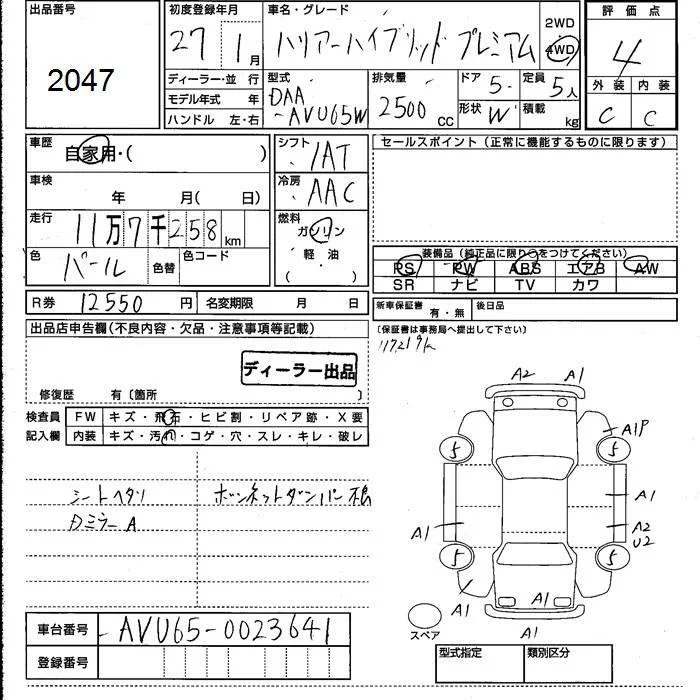 出品番号
2047
初度登録年月
27年1月
車名・グレード
ハリアーハイブリッド プレミアム
2WD
4WD
評価点
4
ディーラー・並行
モデル年式 年
ハンドル 左・右
型式
DAA
-AVU65W
排気量
2500cc
ドア 5
定員 5人
形状 W
積載 kg
外装 内装
C C
車歴
自家用・( )
車検
年 月( 日)
走行
11万7千258km
色
パール
色替
色コード
シフト
IAT
冷房
AAC
燃料
ガソリン
軽・油
( ・ )
セールスポイント(正常に機能するものに限ります)
装備品(純正品に限り○をつけてください)
PS PW ABS エアB AW
SR ナビ TV カワ
R券 12550円
名変期限 月 日
新車保証書 有・無
後日品
(保証書は事務局へ提出して下さい)
出品店申告欄(不良内容・欠品・注意事項等記載)
ディーラー出品
修復歴 有〔箇所 〕
検査員
記入欄
FW キズ・飛石・ヒビ割・リペア跡・X要
内装 キズ・汚れ・コゲ・穴・スレ・キレ・破レ
シートヘタリ
ボンネットダンパー不良
ミラーA
A2 A1
A1P
5 5
A1
A1
A2
U2
5 5
A1
A1
A1
A1
スペア
車台番号
AVU65-0023641
登録番号
型式指定
類別区分